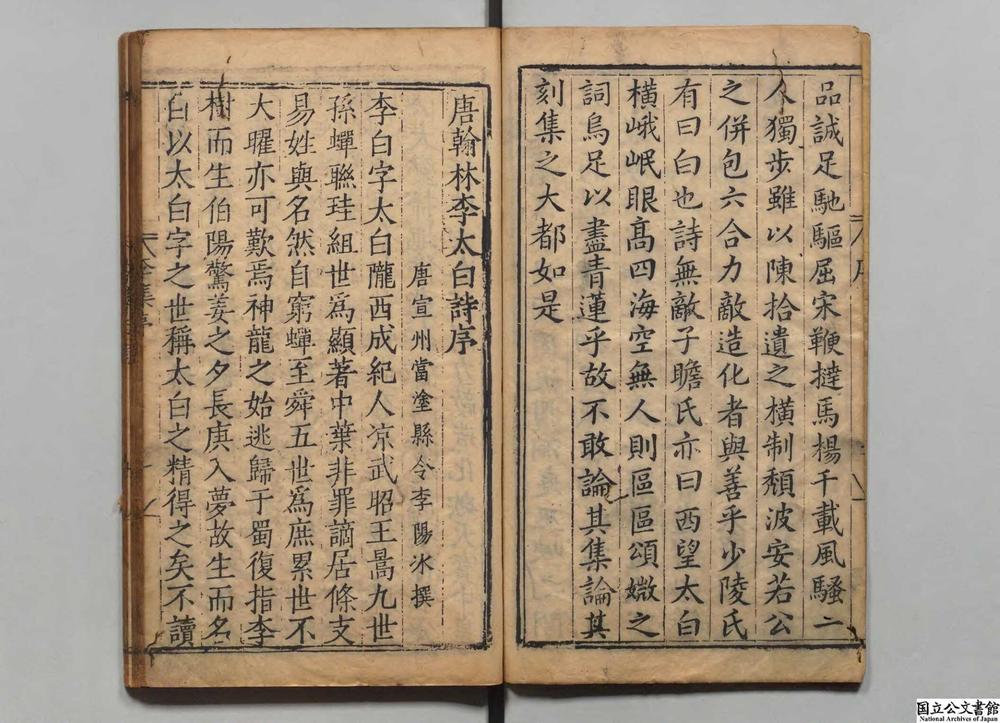 品誠足馳驅屈宋鞭撻馬楊千載風騷二
人獨步雖以陳拾遺之橫制頹波安若公
之併包六合力敵造化者與善乎少陵氏
有曰白也詩無敵子瞻氏亦曰西望太白
橫峨岷眼髙四海空無人則區區頌媺之
詞烏足以盡青蓮乎故不敢論其集論其
刻集之大都如是
唐翰林李太白詩序
唐宣州當塗縣令李陽冰撰
李白字太白隴西成紀人凉武昭王暠九世
孫蟬聯珪組世爲顯著中葉非罪謫居條支
易姓與名然自窮蟬至舜五世爲庶累世不
大曜亦可歎焉神龍之始逃歸于蜀復指李
樹而生伯陽驚姜之夕長庚入夢故生而名
白以太白字之世稱太白之精得之矣不讀
国立公文書館
National Archives of Japan